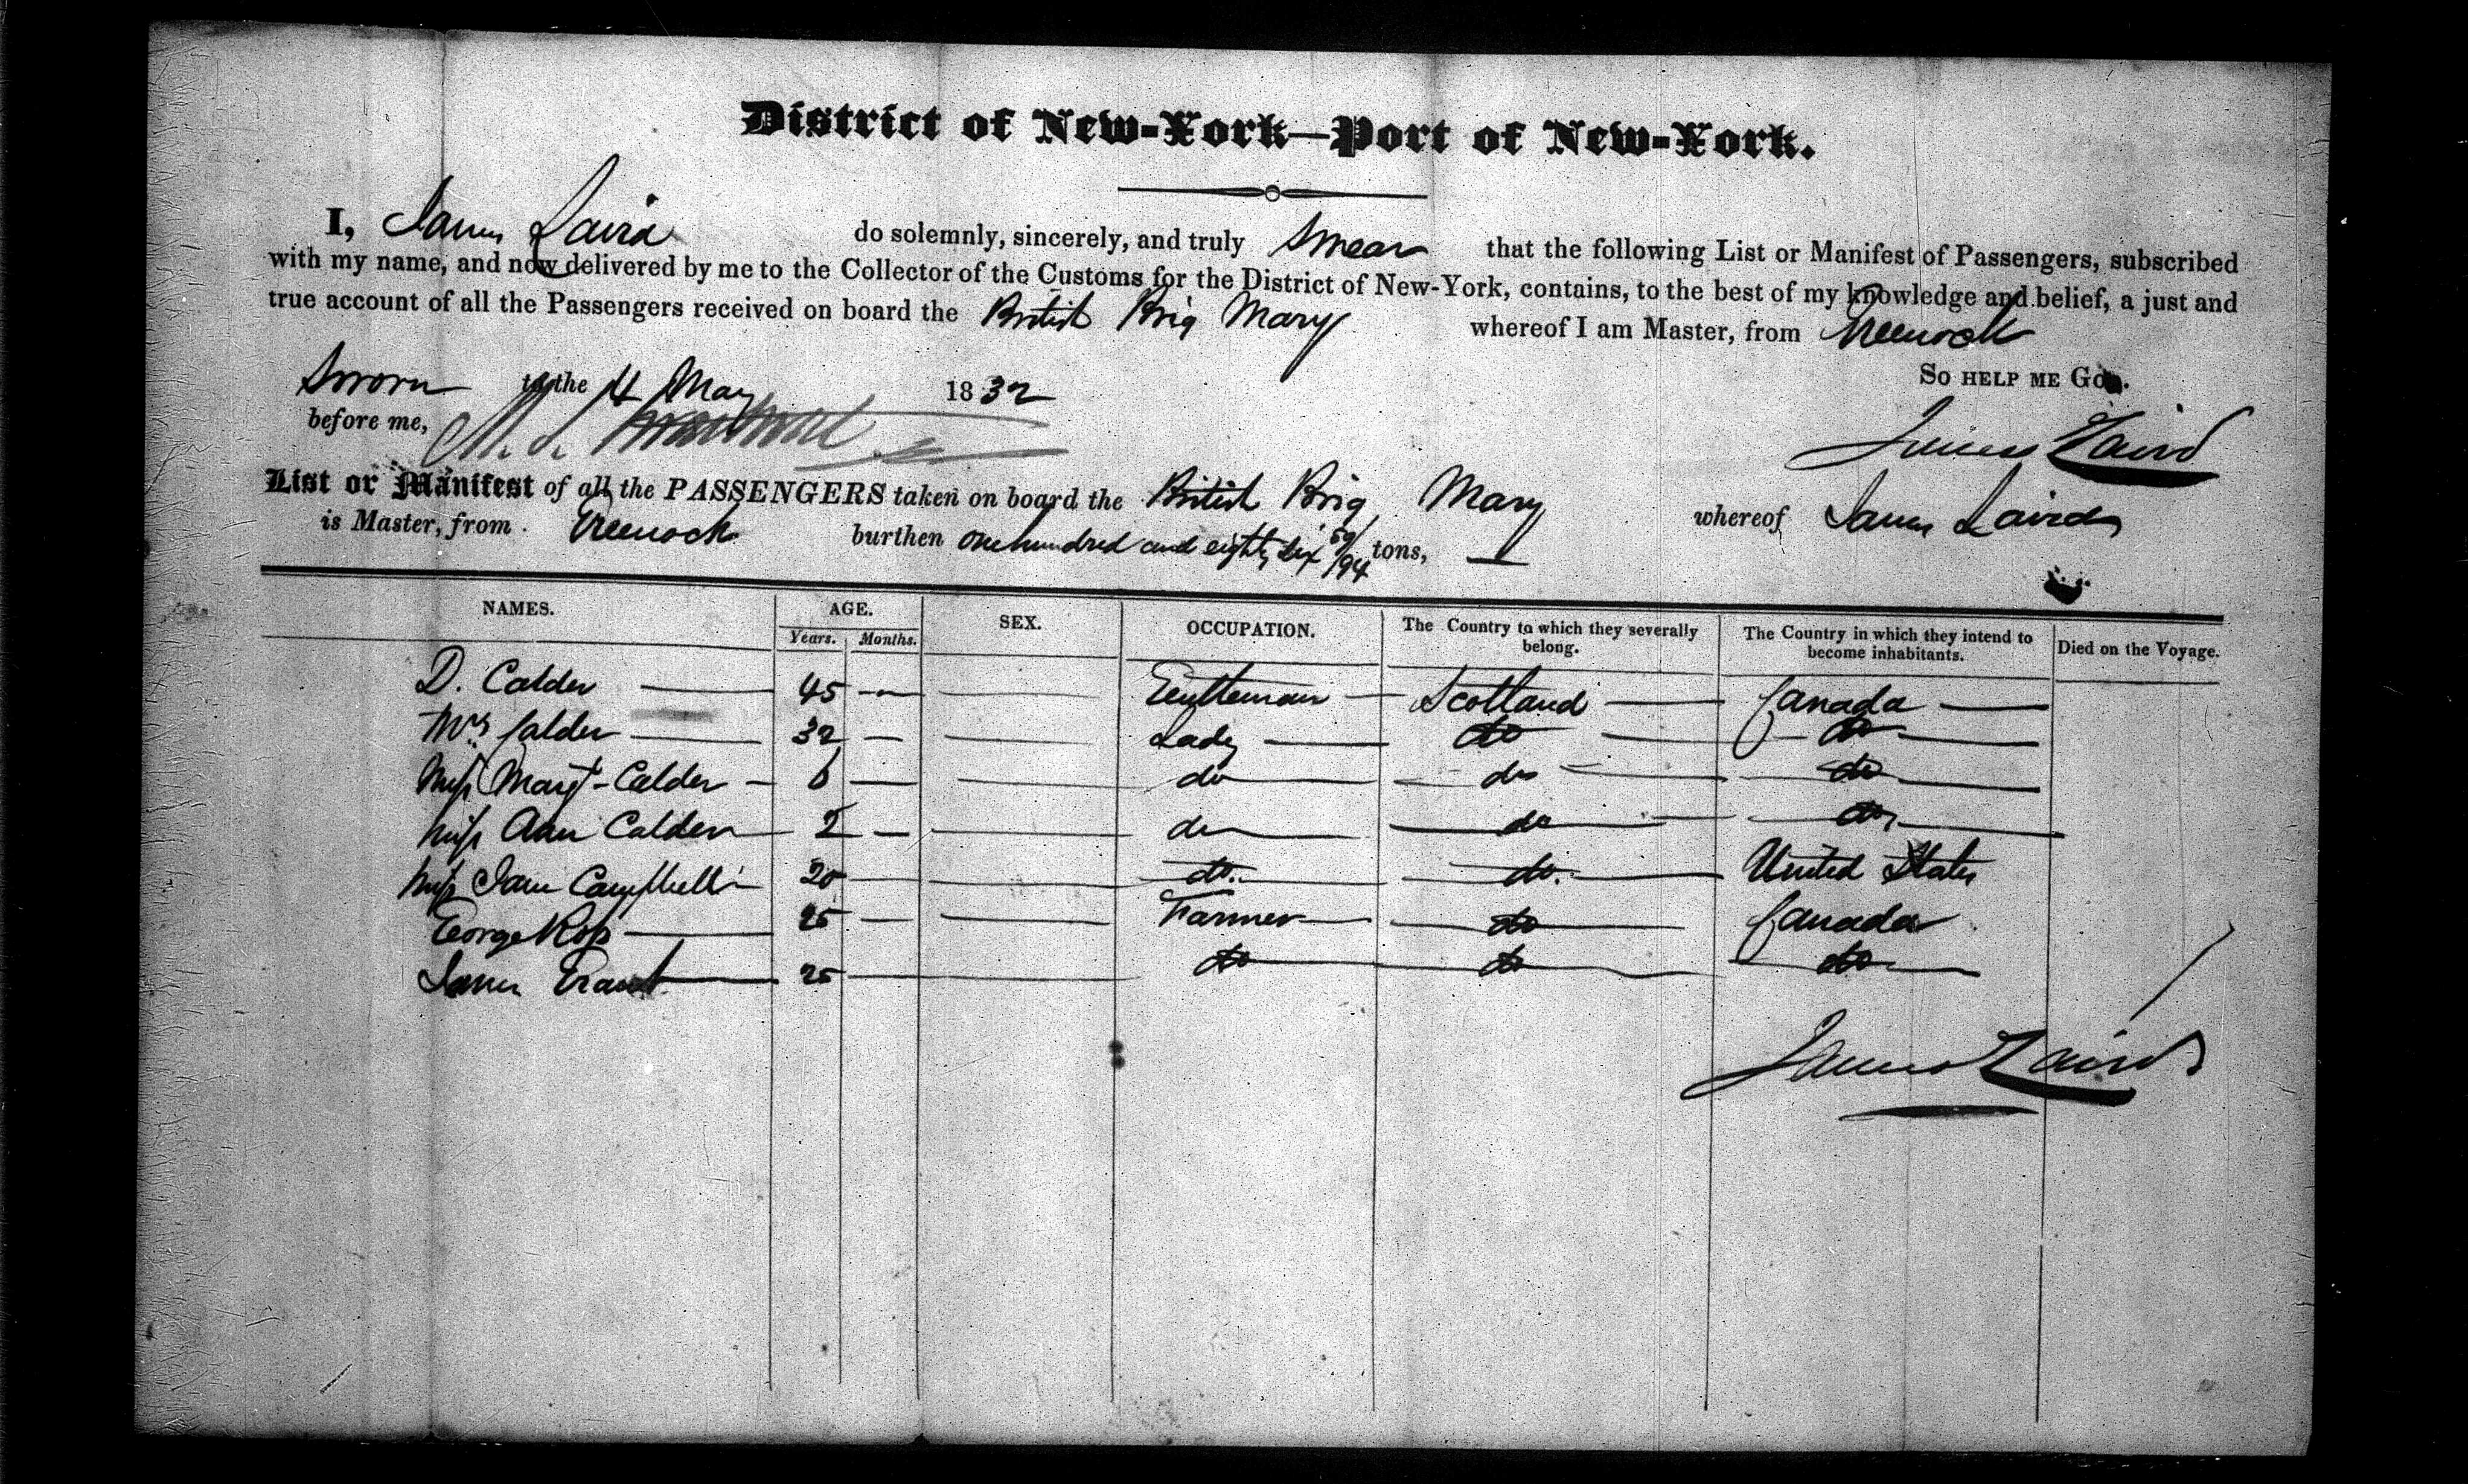 District of New-York—Port of New-York.
I, James Laird do solemnly, sincerely, and truly Swear that the following List or Manifest of Passengers, subscribed
with my name, and now delivered by me to the Collector of the Customs for the District of New-York, contains, to the best of my knowledge and belief, a just and
true account of all the Passengers received on board the British Brig Mary whereof I am Master, from Greenock
So HELP ME GOD.
Sworn to the May 1832
before me,
James Laird
List or Manifest of all the PASSENGERS taken on board the British Brig Mary whereof James Laird
is Master, from Greenock burthen one hundred and eighty six 59/94 tons,
NAMES. AGE. SEX. OCCUPATION. The Country to which they severally belong. The Country in which they intend to become inhabitants. Died on the Voyage.
Years. Months.
D. Calder 45 Gentleman Scotland Canada
Mrs Calder 32 Lady do do
Miss Margt Calder 6 do do do
Miss Ann Calder 2 do do do
Miss Jane Campbell 20 do. do. United States
George Ross 25 Farmer do Canada
James Grant 25 do do do
James Laird